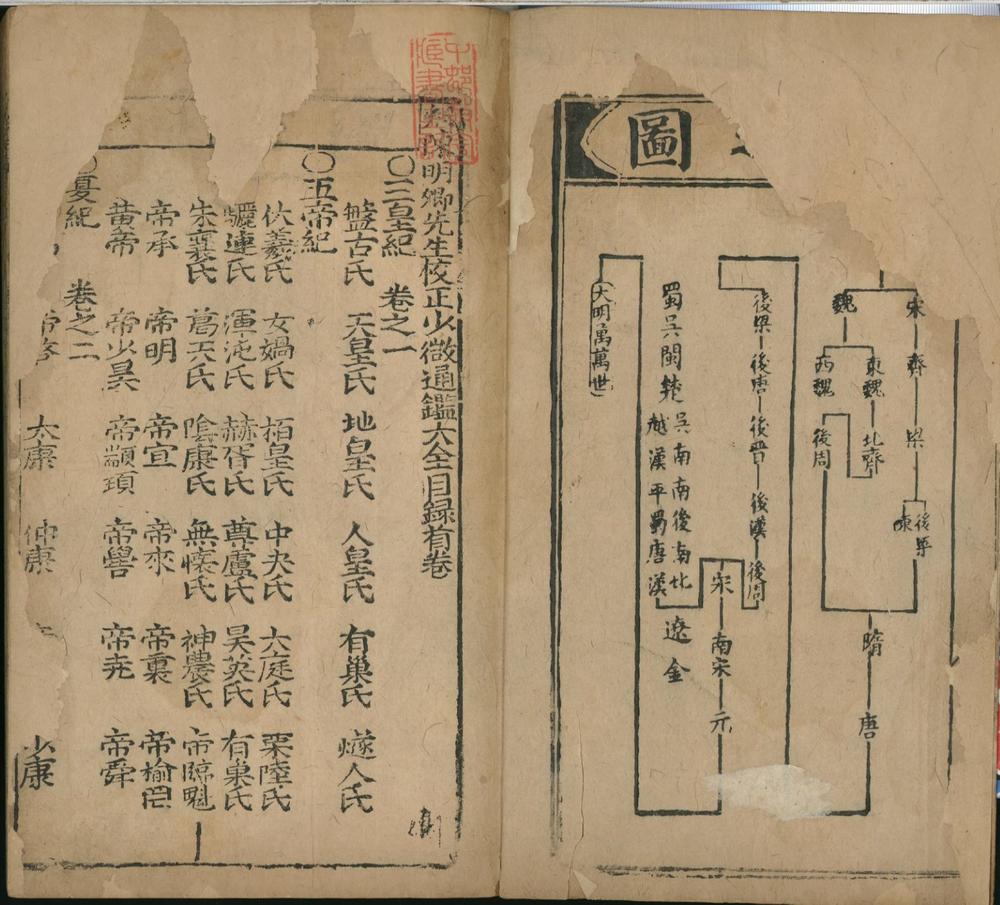 圖
宋
齊
梁
後梁
陳
魏
東魏
北齊
西魏
後周
隋
唐
後梁
後唐
後晋
後漢
後周
宋
南宋
元
蜀吳閩楚吳南南後南北
越漢平蜀唐漢
遼金
大明萬萬世
明卿先生校正少微通鑑大全目録首卷
○三皇紀 卷之一
盤古氏 天皇氏 地皇氏 人皇氏 有巢氏 燧人氏
○五帝紀
伏羲氏 女媧氏 栢皇氏 中央氏 大庭氏 栗陸氏
驪連氏 渾沌氏 赫胥氏 尊盧氏 昊英氏 有巢氏
朱襄氏 葛天氏 陰康氏 無懷氏 神農氏 帝臨魁
帝承 帝明 帝宣 帝來 帝裏 帝榆罔
黄帝 帝少昊 帝顓頊 帝嚳 帝堯 帝舜
○夏紀 卷之二
太康 仲康 少康